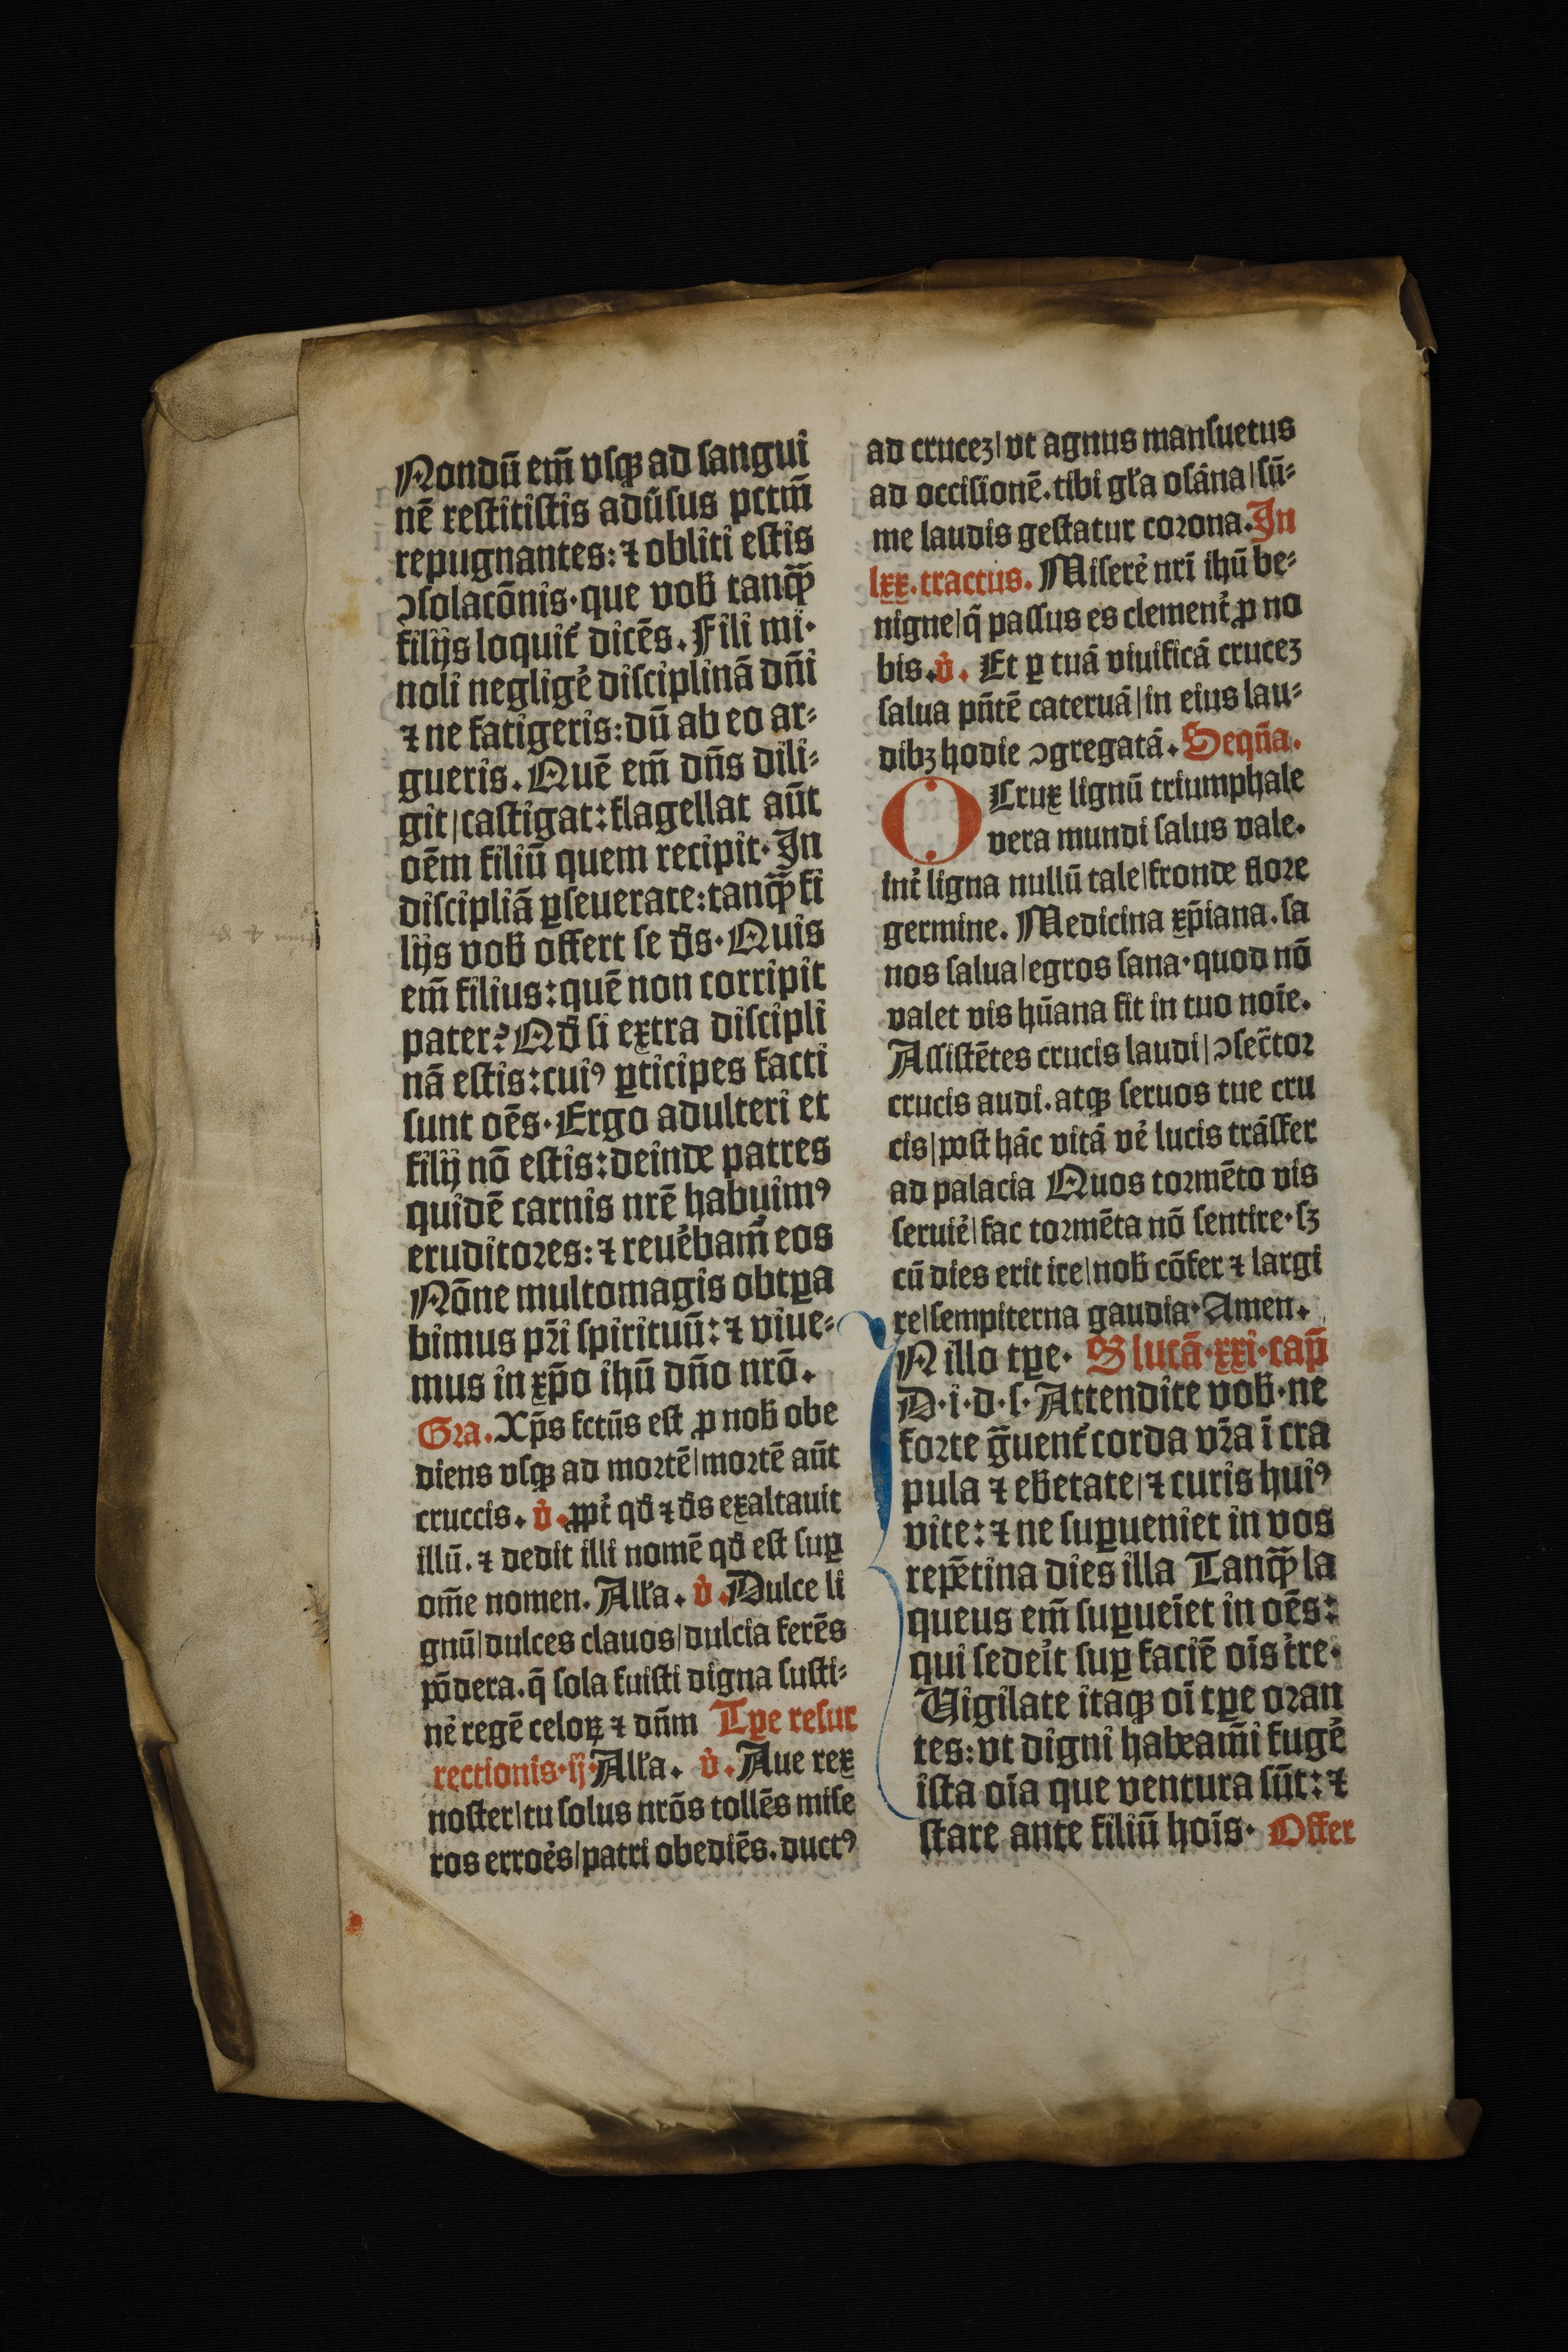 Nondū em̄ vsqꝫ ad sangui
nē restitistis adūsus pctm̄
repugnantes: ⁊ obliti estis
ↄsolacōnis·que vob tanqꝫ̄
filijs loquit᷑ dicēs. Fili mi·
noli neglige᷑ disciplinā dn̄i
⁊ ne fatigeris: dū ab eo ar⸗
gueris. Quē em̄ dn̄s dili⸗
git|castigat: flagellat aūt
oēm filiū quem recipit· In
discipliā ꝑseuerate: tanqꝫ̄ fi
lijs vob offert se ds· Quis
em̄ filius: quē non corripit
pater? Qd si extra discipli
nā estis: cuiꝰ ꝑticipes facti
sunt oēs· Ergo adulteri et
filij nō estis: deinde patres
quidē carnis nrē habuimꝰ
eruditores: ⁊ reue᷑bam̄ eos
Nōne multomagis obtꝑa
bimus pr̄i spirituū: ⁊ viue⸗
mus in xp̄o ihū dn̄o nrō.
Gra. Xp̄s fctūs est ꝓ nob obe
diens vsqꝫ ad mortē|mortē aūt
cruccis. v᷑. ꝓpt᷑ qd ⁊ ds exaltauit
illū. ⁊ dedit illi nomē qd est suꝑ
om̄e nomen. Alla. v᷑. Dulce li
gnū|dulces clauos|dulcia ferēs
pōdera. q̄ sola fuisti digna susti⸗
ne᷑ regē celoꝝ ⁊ dn̄m Tꝑe resur
rectionis·ij· Alla. v᷑. Aue rex
noster|tu solus nrōs tollēs mise
ros erroe᷑s|patri obediēs. ductꝰ
ad crucez|vt agnus mansuetus
ad occisionē. tibi gla osāna|sū⸗
me laudis gestatur corona. In
lxx. tractus. Misere᷑ nri ihū be⸗
nigne|q̄ passus es clement᷑ ꝓ no
bis. v᷑. Et ꝑ tuā viuificā crucez
salua pn̄tē cateruā|in eius lau⸗
dibꝫ hodie ↄgregatā. Seqn̄a.
O Crux lignū triumphale
vera mundi salus vale.
int᷑ ligna nullū tale|fronde flore
germine. Medicina xp̄iana. sa
nos salua|egros sana·quod nō
valet vis hūana fit in tuo noīe.
Assistētes crucis laudi|ↄsec̄tor
crucis audi. atqꝫ seruos tue cru
cis|post hāc vitā ve᷑ lucis trāsfer
ad palacia Quos tormēto vis
seruie᷑|fac tormēta nō sentire·sꝫ
cū dies erit ire|nob cōfer ⁊ largi
re|sempiterna gaudia· Amen.
IN illo tꝑe· S lucā·xxi·cap̄
D·i·d·s· Attendite vob·ne
forte g̃uent᷑ corda vr̄a ī cra
pula ⁊ ebetate|⁊ curis huiꝰ
vite: ⁊ ne suꝑueniet in vos
repētina dies illa Tanqꝫ̄ la
queus em̄ suꝑueīet in oēs:
qui sedei᷑t suꝑ faciē oīs t᷑re·
Uigilate itaqꝫ oī tꝑe oran
tes: vt digni habeam̄i fuge᷑
ista oīa que ventura sūt: ⁊
stare ante filiū hoīs· Offer